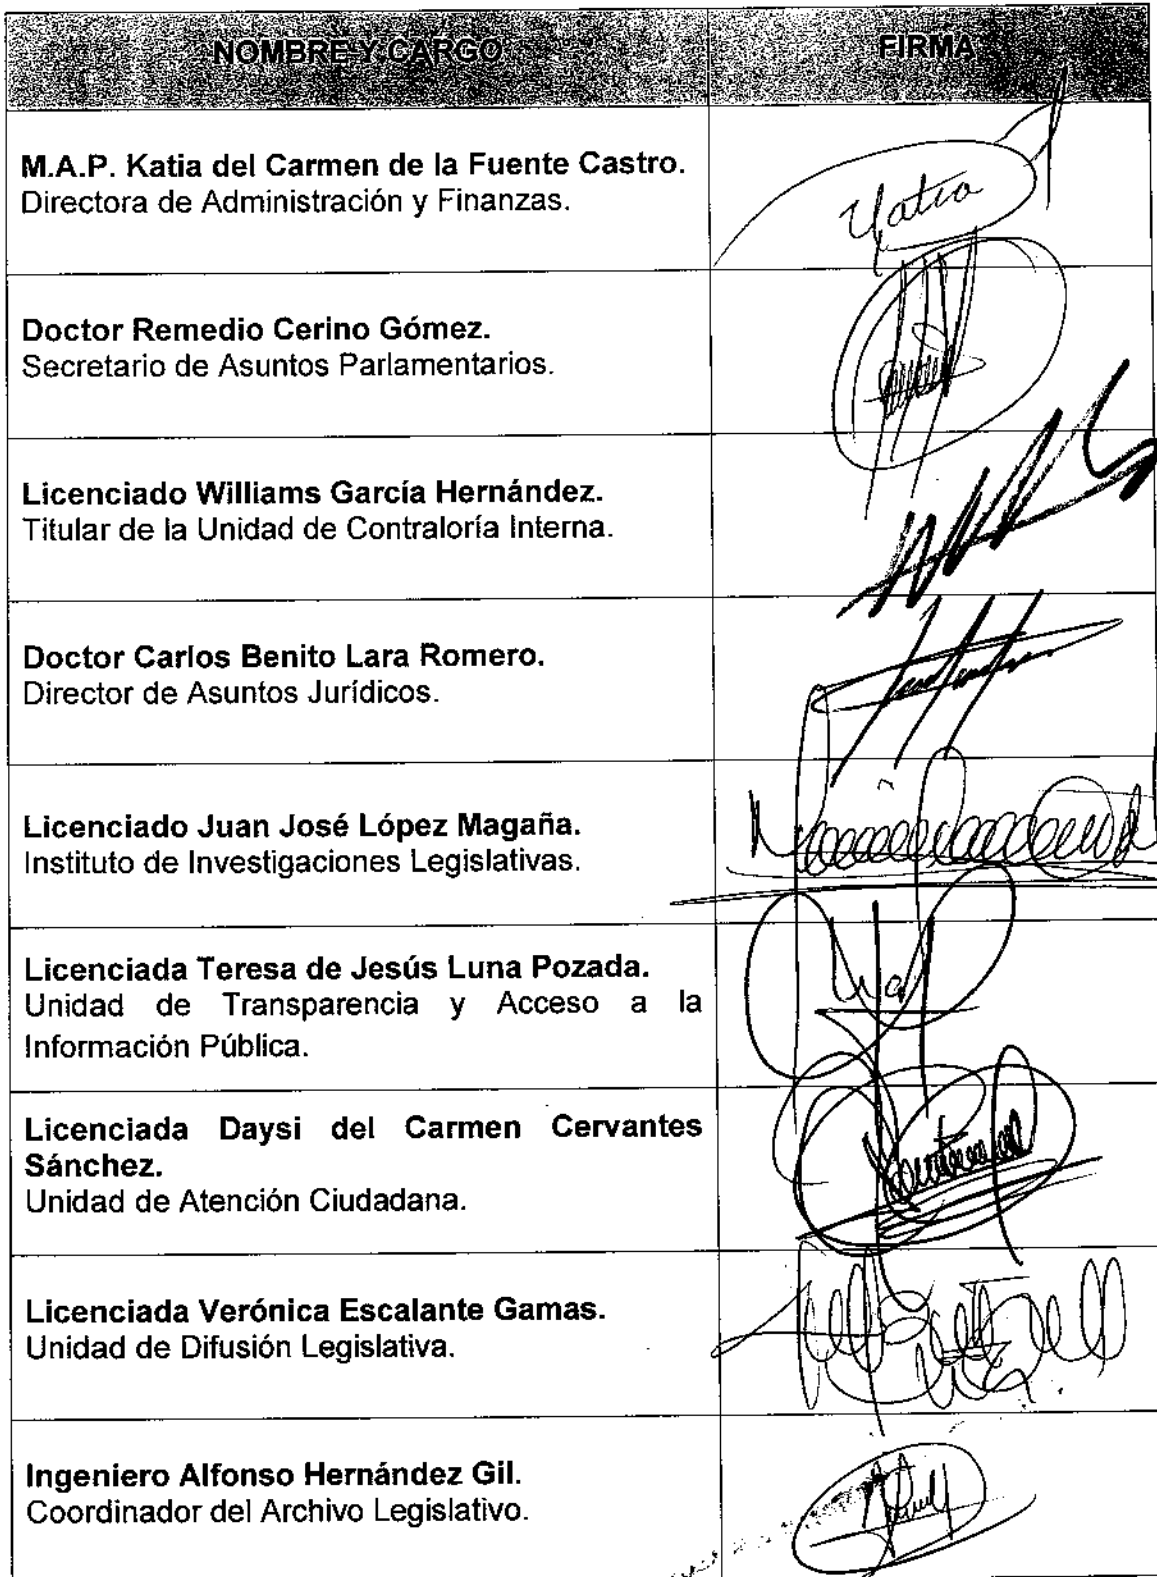 NOMBRE Y CARGO
FIRMA
M.A.P. Katia del Carmen de la Fuente Castro.
Directora de Administración y Finanzas.
Katia
Doctor Remedio Cerino Gómez.
Secretario de Asuntos Parlamentarios.
Licenciado Williams García Hernández.
Titular de la Unidad de Contraloría Interna.
Doctor Carlos Benito Lara Romero.
Director de Asuntos Jurídicos.
Licenciado Juan José López Magaña.
Instituto de Investigaciones Legislativas.
Licenciada Teresa de Jesús Luna Pozada.
Unidad de Transparencia y Acceso a la
Información Pública.
Licenciada Daysi del Carmen Cervantes
Sánchez.
Unidad de Atención Ciudadana.
Licenciada Verónica Escalante Gamas.
Unidad de Difusión Legislativa.
Ingeniero Alfonso Hernández Gil.
Coordinador del Archivo Legislativo.